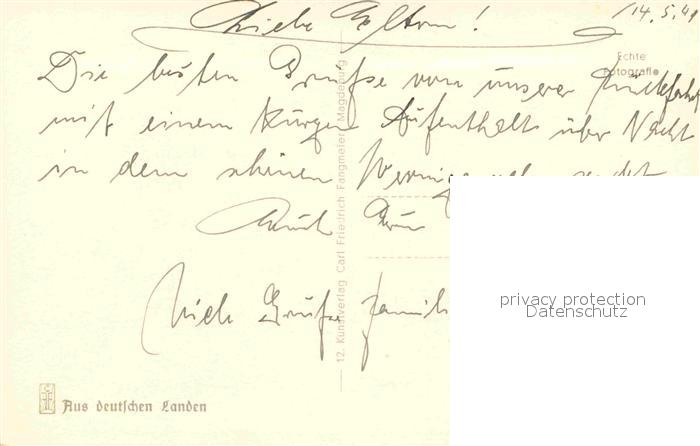 14.5.41
Liebe Eltern!
Echte
Fotografie
Die besten Grüße von unserer
mit einem kurzen Aufenthalt über Nacht
in dem schönen
Viele Grüße
12. Kunstverlag Carl Friedrich Fangmeier, Magdeburg
privacy protection
Datenschutz
Aus deutschen Landen